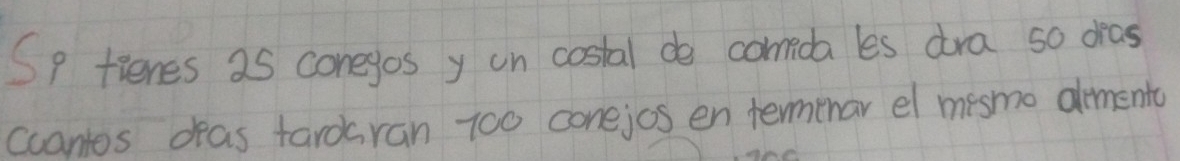 Si tienes 25 conegos y un costal de comida les dura 50 dias
Cuantos dias tardaran 100 conejos en terminar el mismo alimento